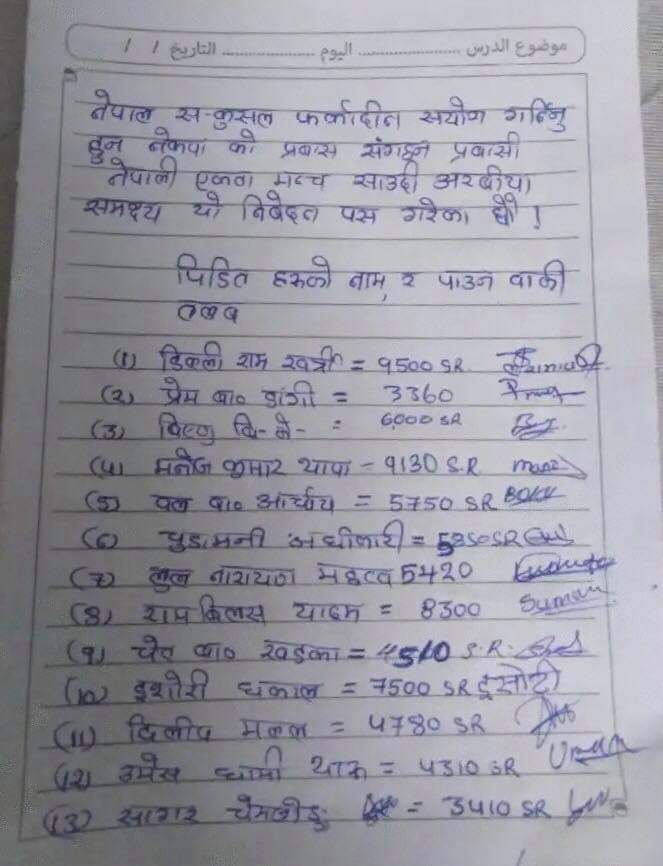 موضوع الدرس ............ اليوم ............ التاريخ / /
नेपाल स-कुसल फर्कादीन सयोग गर्दिनु
हुन नेकपा को प्रबास संगठन प्रबासी
नेपाली एकता मन्च साउदी अरबीया
समक्ष्य यो निबेदन पस गरेका छौ !
पिडित हरुको नाम, र पाउन बाकी
तलब
(1) डिल्ली राम खत्री = 9500 SR
(२) प्रेम बा० डांगी = 3360
(3) विष्णु वि-के- = 6000 SR
(4) मनोज कुमार थापा = 9130 S.R
(5) बल बा० आर्चाय = 5750 SR
(6) चुडामनी अधीकारी = 5350 SR
(7) नारायण 5420
(8) राम बिलस यादव = 8300 Suman
(9) चेत बा० खडका = 4510 S.R.
(10) इशोरी ढकाल = 7500 SR
(11) दिलीप मल्ल = 4780 SR
(12) उमेस धामी = 4310 SR
(13) सागर = 3410 SR